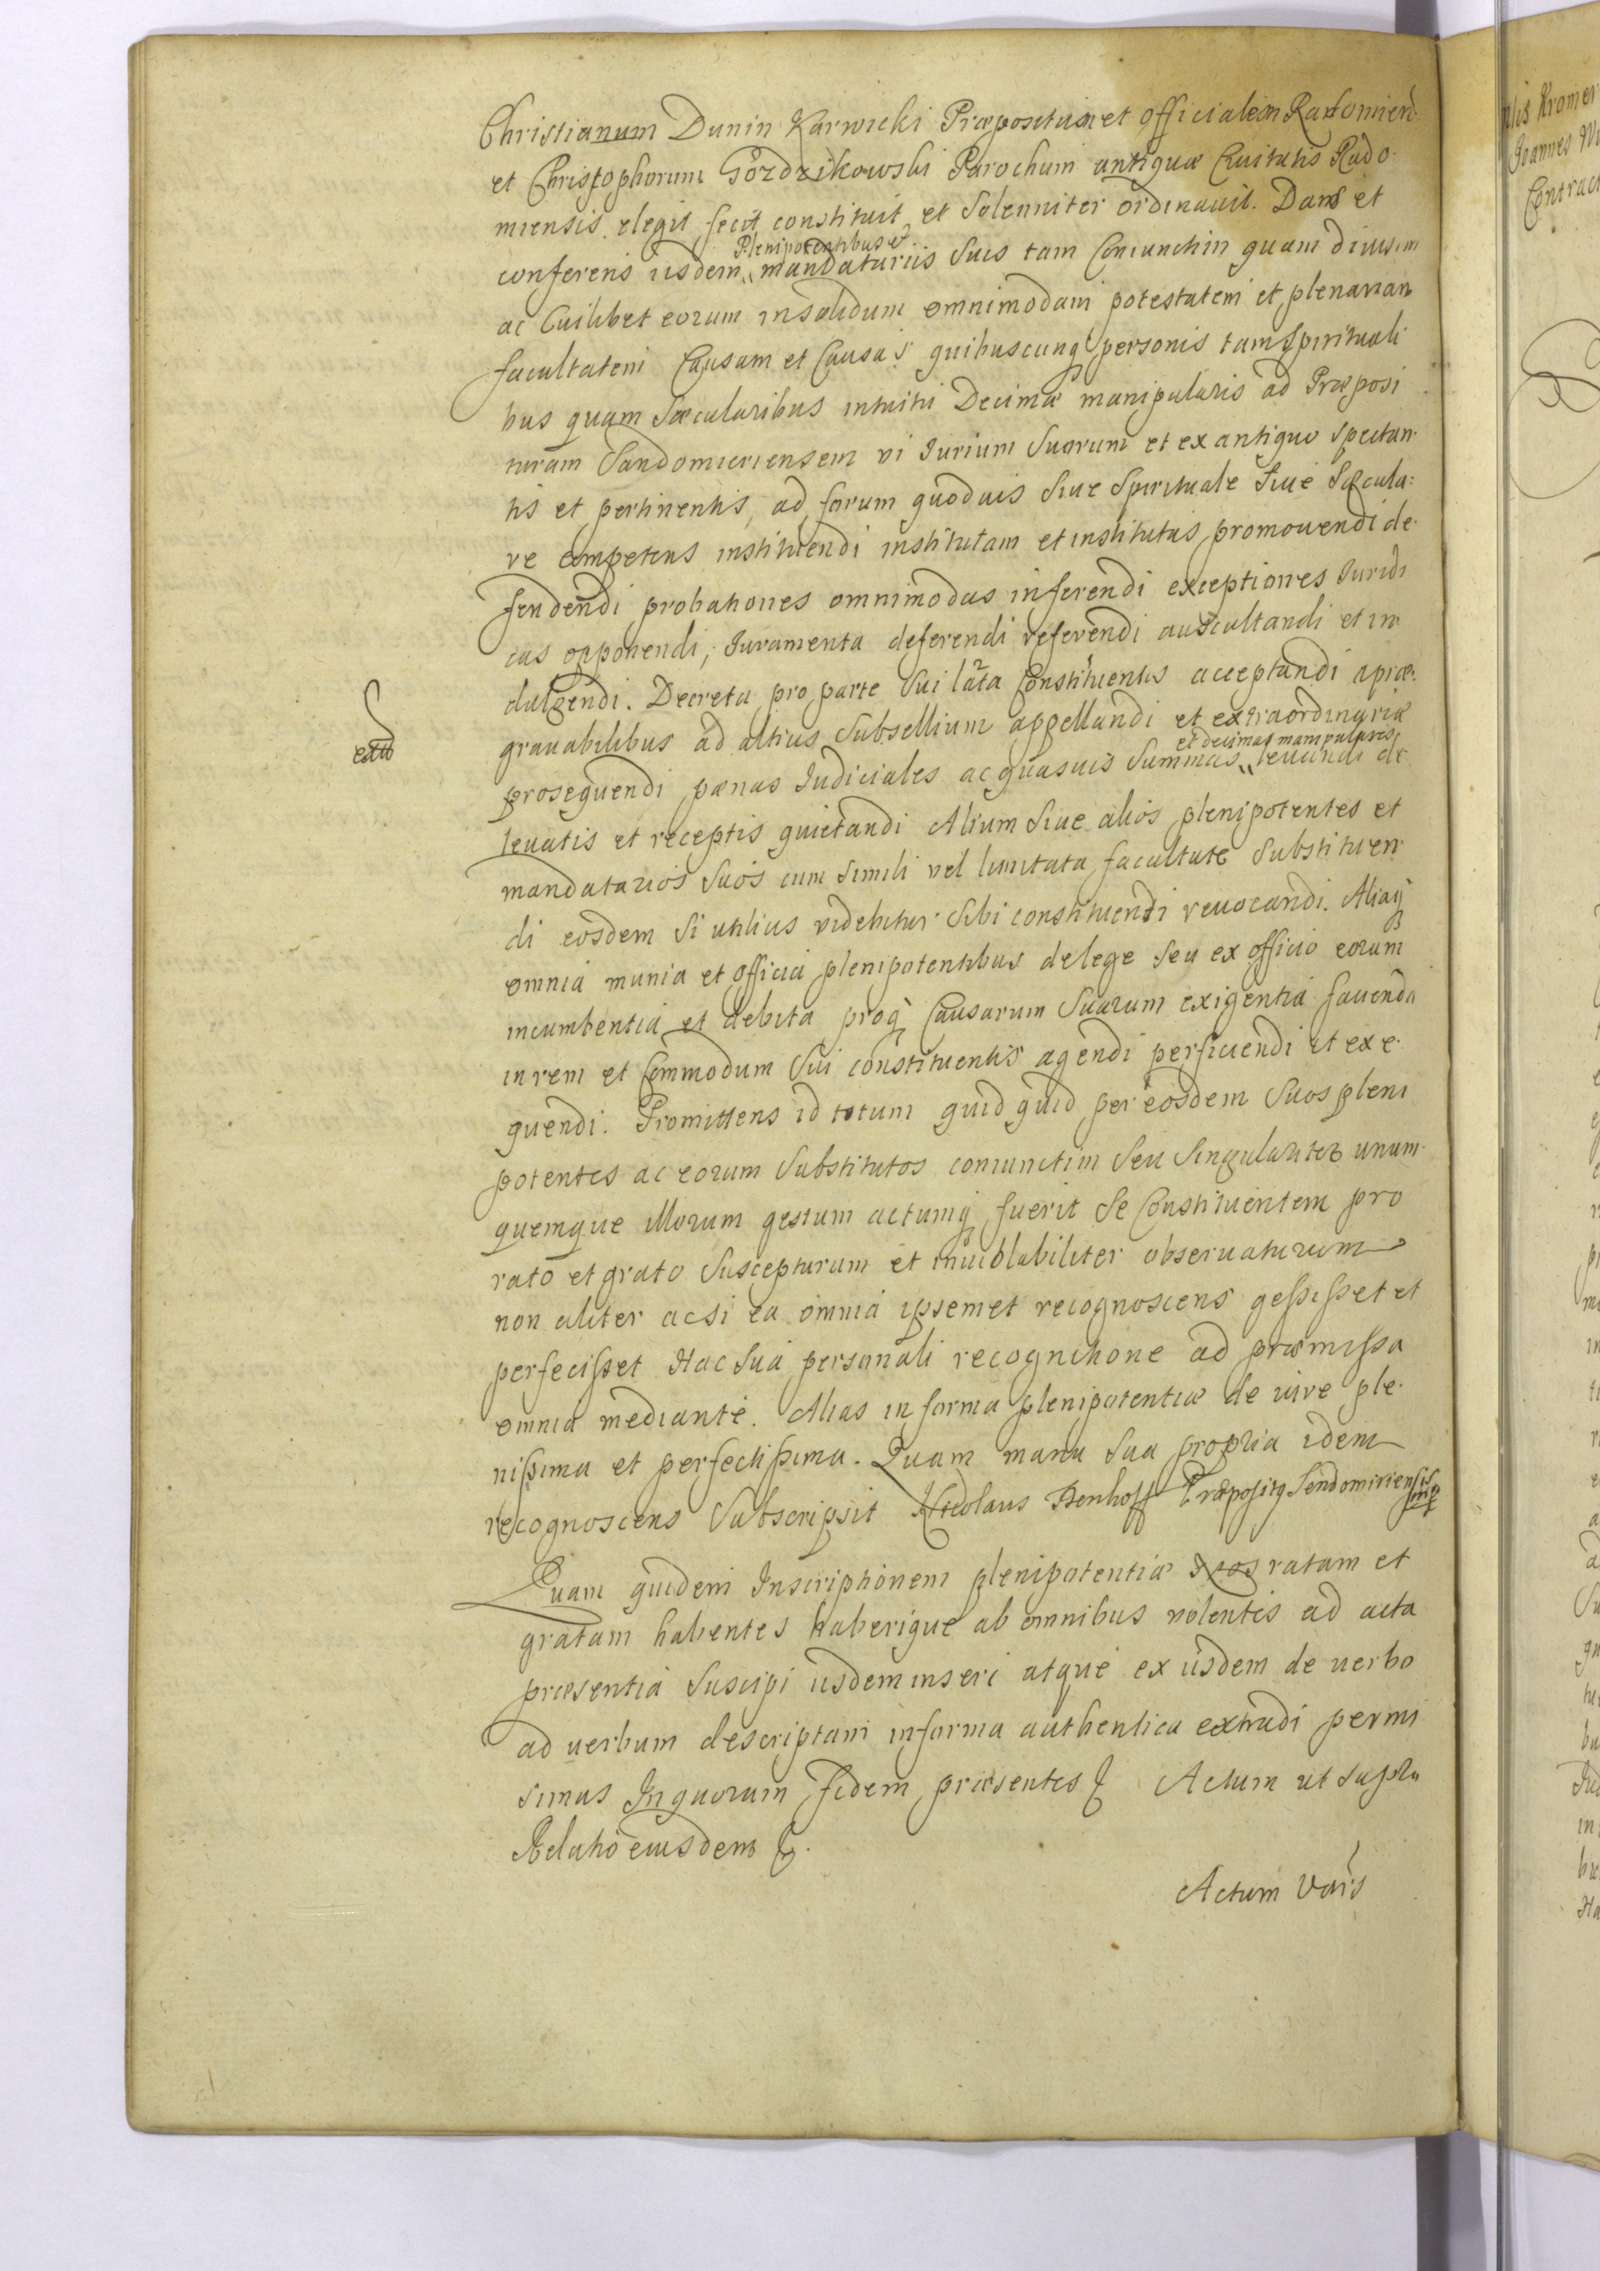 Christianum Dunin Karwicki Præpositum et Officialem Radomien
et Christophorum Gozdzikowski Parochum antiquæ Civitatis Rado-
miensis elegit fecit constituit et Solenniter ordinavit. Dans et
conferens iisdem Plenipotentibus et mandatariis Suis tam Coniunctim quam divisim
ac Cuilibet eorum insolidum omnimodam potestatem et plenariam
facultatem Causam et Causas quibuscunq personis tam Spirituali
bus quam Sæcularibus intuitu Decimæ manipularis ad Præposi
turam Sandomiriensem vi Iurium Suorum et ex antiquo Spectan-
tis et pertinentis, ad forum quodvis Sive Spirituale Sive Sæcula:
re competens instituendi institutam et institutas promovendi de-
fendendi probationes omnimodas inferendi exceptiones Iuridi
cas opponendi, Iuramenta deferendi referendi auscultandi et in
dulgendi. Decreta pro parte Sui lata Constituentis acceptandi a præ:
gravabilibus ad altius Subsellium appellandi et extraordinariæ
prosequendi pænas Iudiciales ac quasvis Summas et decimas manipulares levandi de
levatis et receptis quietandi Alium Sive alios plenipotentes et
mandatarios Suos cum Simili vel limitata facultate Substituen
di eosdem Si utilius videbitur Sibi constituendi revocandi. Aliaq
omnia munia et officia plenipotentibus de lege Seu ex officio eorum
incumbentia et debita proq Causarum Suarum exigentia favenda
in rem et Commodum Sui constituentis agendi perficiendi et exe-
quendi. Promittens id totum quidquid per eosdem Suos pleni
potentes ac eorum Substitutos coniunctim Seu Singulariter unum-
quemque illorum gestum actumq fuerit Se Constituentem pro
rato et grato Suscepturum et inviolabiliter observaturum
non aliter acsi ea omnia ipsemet recognoscens gessisset et
perfecisset Hac Sua personali recognitione ad præmissa
omnia mediante. Alias in forma plenipotentiæ de iure ple-
nissima et perfectissima. Quam manu Sua propria idem
recognoscens Subscripsit Nicolaus Denhoff Præpositq Sendomiriensis mp
Quam quidem Inscriptionem plenipotentiæ Nos ratam et
gratam habentes haberique ab omnibus volentes ad acta
præsentia Suscipi iisdem inseri atque ex iisdem de verbo
ad verbum descriptam in forma authentica extradi permi
simus In quorum fidem præsentes Actum ut Supra
Relatio eiusdem
Actum Vars